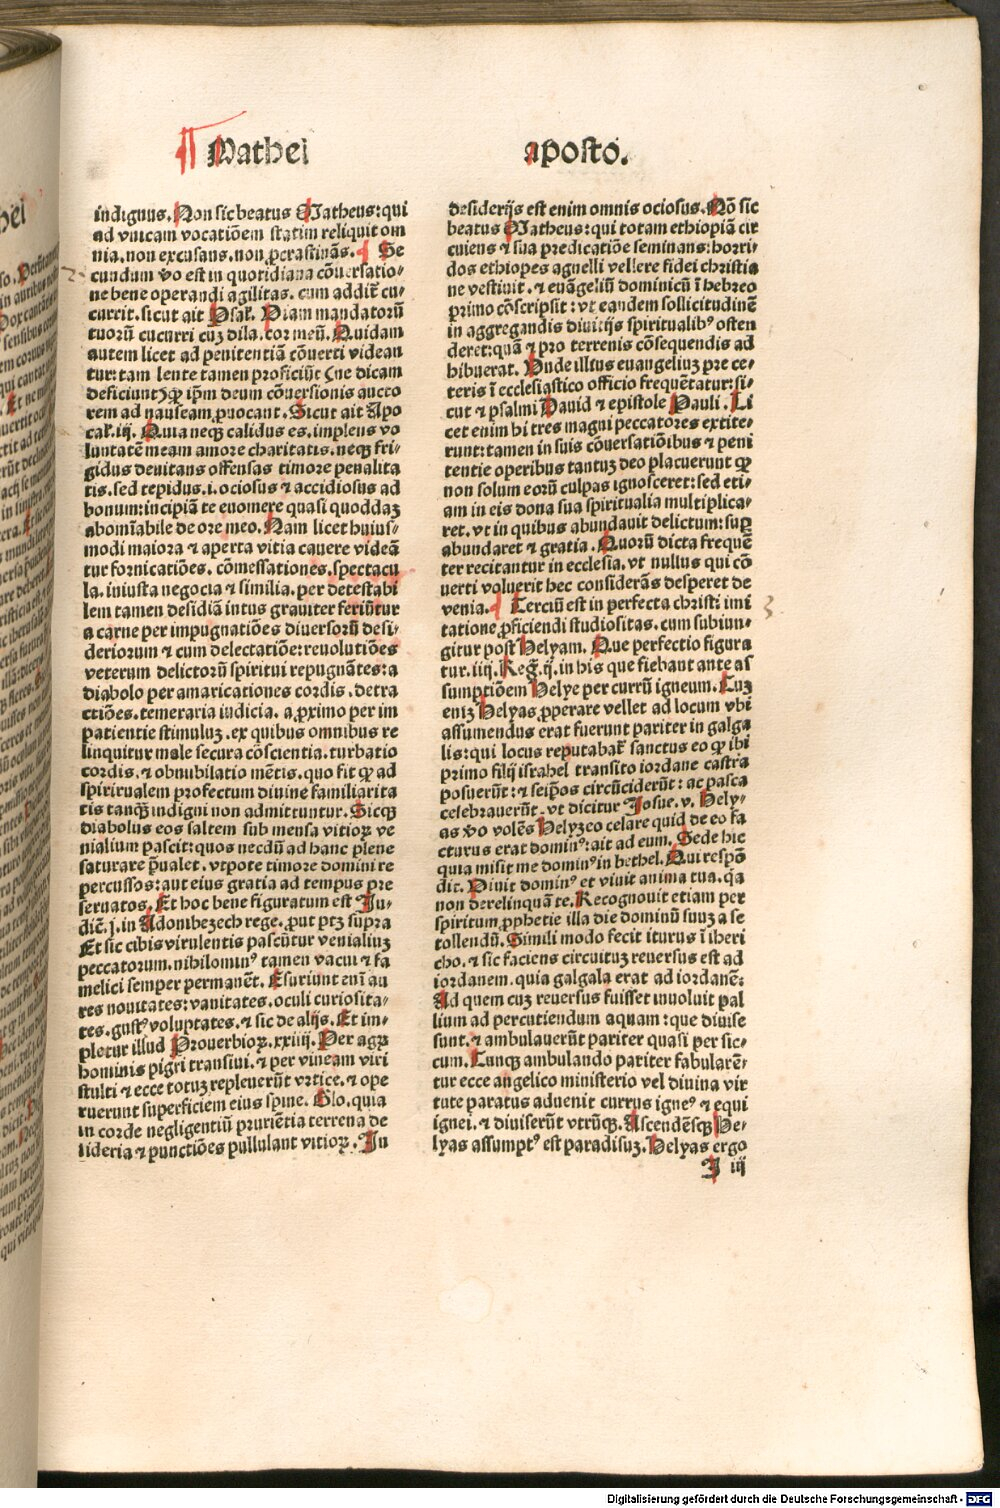 Mathei aposto.
indignus. Non sic beatus Matheus: qui
ad vnicam vocatiōem statim reliquit om
nia. non excusans. non ꝓcrastinās. ¶ Se
cundum ꝟo est in quotidiana cōuersatio-
ne bene operandi agilitas. cum addit̄ cu-
currit. sicut ait Psal. Viam mandatorū
tuorū cucurri cuꝫ dila. cor meū. Quidam
autem licet ad penitentiā cōuerti videan
tur: tam lente tamen proficiūt (ne dicam
deficiunt) ꝙ ip̄m deum cōuersionis aucto
rem ad nauseam ꝓuocant. Sicut ait Apo
cal. iij. Quia neqꝫ calidus es. impleus vo
luntatē meam amore charitatis. neqꝫ fri-
gidus deuitans offensas timore penalita
tis. sed tepidus. i. ociosus ⁊ accidiosus ad
bonum: incipiā te euomere quasi quoddaꝫ
abomīabile de ore meo. Nam licet huius-
modi maiora ⁊ aperta vitia cauere videā
tur fornicatiōes. cōmessationes. spectacu
la. iniusta negocia ⁊ similia. per detestabi
lem tamen desidiā intus grauiter feriūtur
a carne per impugnatiōes diuersorū desi-
deriorum ⁊ cum delectatiōe: reuolutiōes
veterum delictorū spiritui repugnātes: a
diabolo per amaricationes cordis. detra
ctiōes. temeraria iudicia. a ꝓximo per im
patientie stimuluꝫ. ex quibus omnibus re
linquitur male secura cōscientia. turbatio
cordis. ⁊ obnubilatio mētis. quo fit ꝙ ad
spirirualem profectum diuine familiarita
tis tanꝗ̄ indigni non admittuntur. Sicqꝫ
diabolus eos saltem sub mensa vitioꝝ ve
nialium pascit: quos necdū ad hanc plene
saturare p̄ualet. vtpote timore domini re
percussos: aut eius gratia ad tempus pre
seruatos. Et hoc bene figuratum est Ju-
dic̄. j. in Adonibezech rege. ꝓut ptꝫ sup̄ra
Et sic cibis virulentis pascūtur venialiuꝫ
peccatorum. nihilominꝰ tamen vacui ⁊ fa
melici semper permanēt. Esuriunt enī au
res nouitates: vanitates. oculi curiosita-
tes. gustꝰ voluptates. ⁊ sic de alijs. Et im-
pletur illud Prouerbioꝝ. xxiiij. Per agꝝ
hominis pigri transiui. ⁊ per vineam viri
stulti ⁊ ecce totuꝫ repleuerūt vrtice. ⁊ ope
ruerunt superficiem eius spine. Glo. quia
in corde negligentiū pruriētia terrena de
sideria ⁊ punctiōes pullulant vitioꝝ. In
desiderijs est enim omnis ociosus. Nō sic
beatus Matheus: qui totam ethiopiā cir
cuiens ⁊ sua predicatiōe seminans: horri-
dos ethiopes agnelli vellere fidei christia
ne vestiuit. ⁊ euāgeliū dominicū ī hebreo
primo cōscripsit: vt eandem sollicitudinē
in aggregandis diuitijs spiritualibꝰ osten
deret: quā ⁊ pro terrenis cōsequendis ad
hibuerat. Vnde illius euangeliuꝫ pre ce-
teris ī ecclesiastico officio frequētatur: si-
cut ⁊ psalmi Dauid ⁊ epistole Pauli. Li
cet enim hi tres magni peccatores extite-
runt: tamen in suis cōuersatiōibus ⁊ peni
tentie operibus tantuꝫ deo placuerunt ꝙ
non solum eorū culpas ignosceret: sed eti-
am in eis dona sua spiritualia multiplica-
ret. vt in quibus abundauit delictum: suꝑ
abundaret ⁊ gratia. Quorū dicta frequē
ter recitantur in ecclesia. vt nullus qui cō
uerti voluerit hec considerās desperet de
venia. ¶ Terciū est in perfecta christi imi
tatione ꝓficiendi studiositas. cum subiun-
gitur post Helyam. Que perfectio figura
tur. iiij. Reḡ. ij. in his que fiebant ante as
sumptiōem Helye per currū igneum. Cuꝫ
eniꝫ Helyas ꝓperare vellet ad locum vbi
assumendus erat fuerunt pariter in galga
lis: qui locus reputabat̄ sanctus eo ꝙ ibi
primo filij israhel transito iordane castra
posuerūt: ⁊ seip̄os circūciderūt: ac pasca
celebrauerūt. vt dicitur Josue. v. Hely-
as ꝟo volēs Helyzeo celare quid de eo fa
cturus erat dominꝰ: ait ad eum. Sede hic
quia misit me dominꝰ in bethel. Qui respō
dit. Viuit dominꝰ et viuit anima tua. q̄a
non derelinquā te. Recognouit etiam per
spiritum ꝓphetie illa die dominū suuꝫ a se
tollendū. Simili modo fecit iturus ī iheri
cho. ⁊ sic faciens circuituꝫ reuersus est ad
iordanem. quia galgala erat ad iordanē:
Ad quem cuꝫ reuersus fuisset inuoluit pal
lium ad percutiendum aquam: que diuise
sunt. ⁊ ambulauerūt pariter quasi per sic-
cum. Cunqꝫ ambulando pariter fabularē-
tur ecce angelico ministerio vel diuina vir
tute paratus aduenit currus igneꝰ ⁊ equi
ignei. ⁊ diuiserūt vtrūqꝫ. Ascendēsqꝫ He-
lyas assumptꝰ est paradisuꝫ. Helyas ergo
J iij
2
3
Digitalisierung gefördert durch die Deutsche Forschungsgemeinschaft - DFG